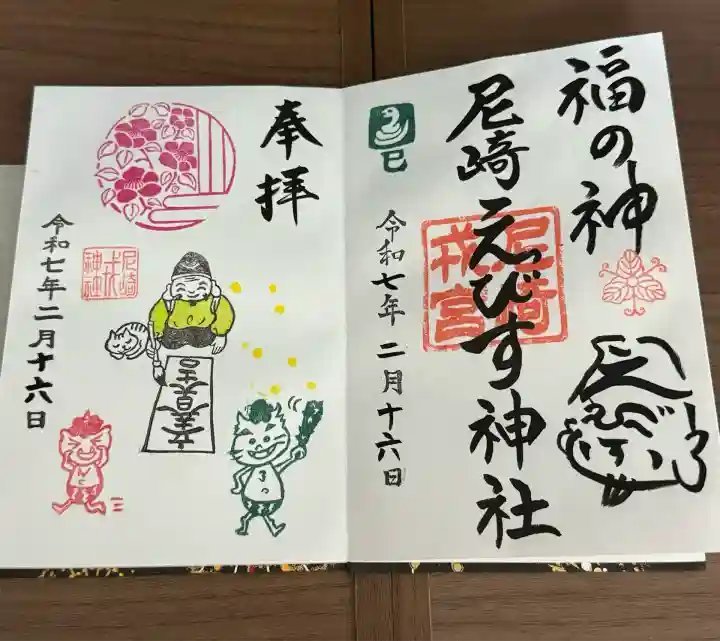 福の神
尼崎えびす神社
尼崎
戎宮
巳
令和七年二月十六日
奉拝
尼崎
戎
神社
立春大吉
令和七年二月十六日